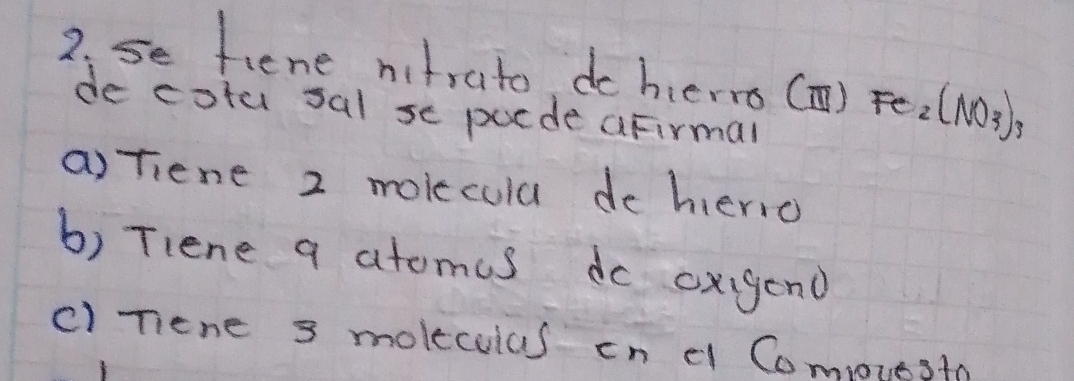 2. Se tiene nitrato de hierro (III) Fe₂(NO₃)₃
de esta sal se puede aFirmar
a) Tiene 2 molecula de hierro
b) Tiene 9 atomos de oxigeno
c) Tiene 3 moleculas en el Compuesto